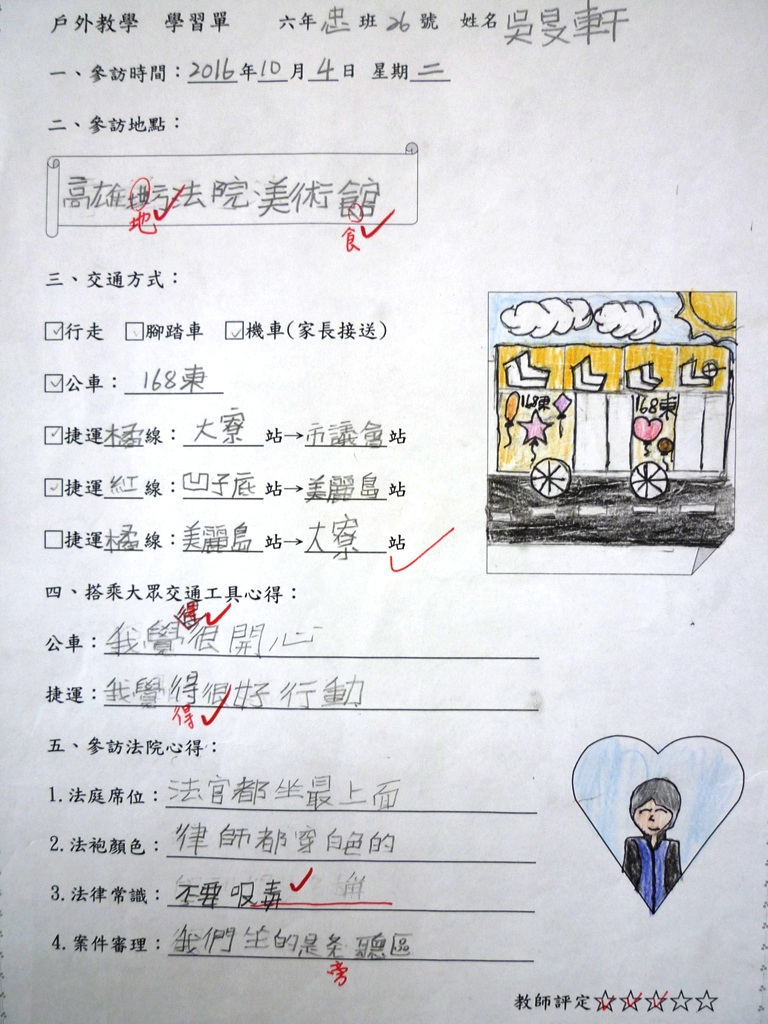 戶外教學 學習單 六年忠班26號 姓名吳旻軒
一、參訪時間：2016年10月4日 星期二
二、參訪地點：
高雄地方法院.美術館
地 食
三、交通方式：
☑行走 ☑腳踏車 ☑機車(家長接送)
☑公車：168東
☑捷運橘線：大寮站→市議會站
☑捷運紅線：凹子底站→美麗島站
□捷運橘線：美麗島站→大寮站
168東 168東
四、搭乘大眾交通工具心得：
得
公車：我覺很開心
捷運：我覺得很好行動
得
五、參訪法院心得：
1.法庭席位：法官都坐最上面
2.法袍顏色：律師都穿白色的
3.法律常識：不要吸毒
4.案件審理：我們坐的是旁聽區
旁
教師評定☆☆☆☆☆